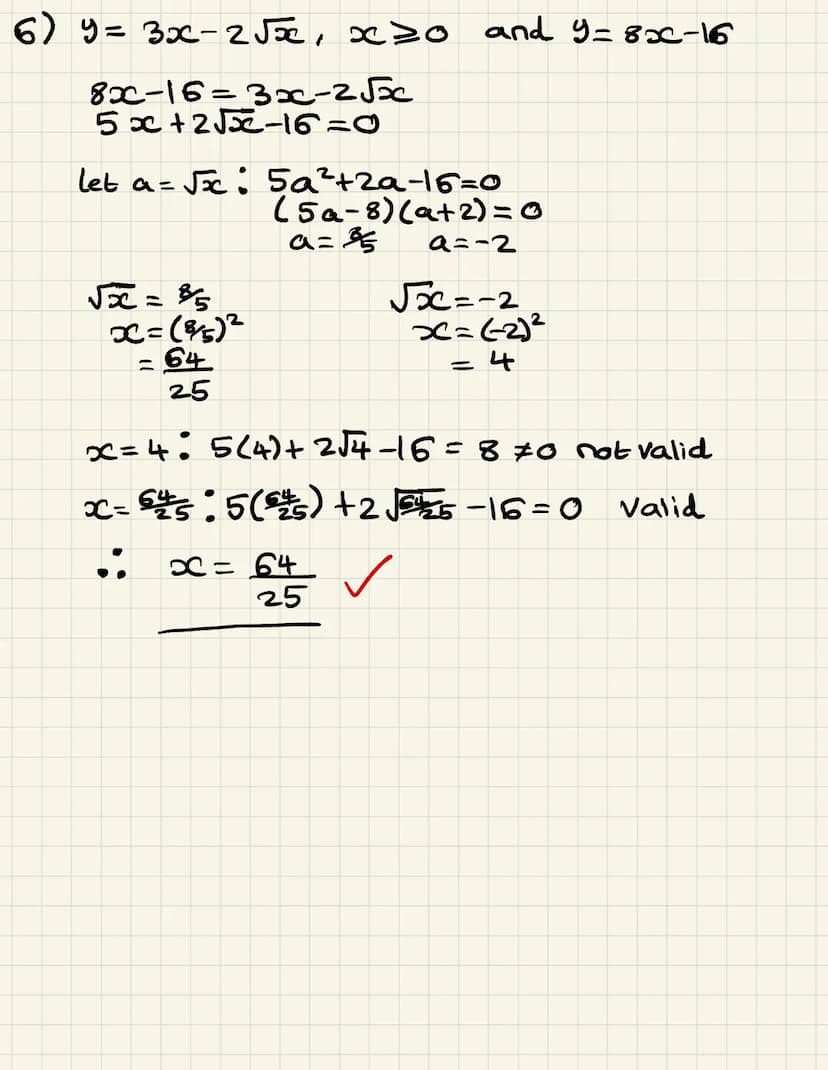 6) y = 3x - 2√x, x ⩾ 0 and y = 8x - 16
8x - 16 = 3x - 2√x
5x + 2√x - 16 = 0
let a = √x : 5a² + 2a - 16 = 0
(5a - 8)(a + 2) = 0
a = 8/5 a = -2
√x = 8/5 √x = -2
x = (8/5)² x = (-2)²
= 64/25 = 4
x = 4 : 5(4) + 2√4 - 16 = 8 ≠ 0 not valid
x = 64/25 : 5(64/25) + 2√64/25 - 16 = 0 valid
∴ x = 64/25 ✓